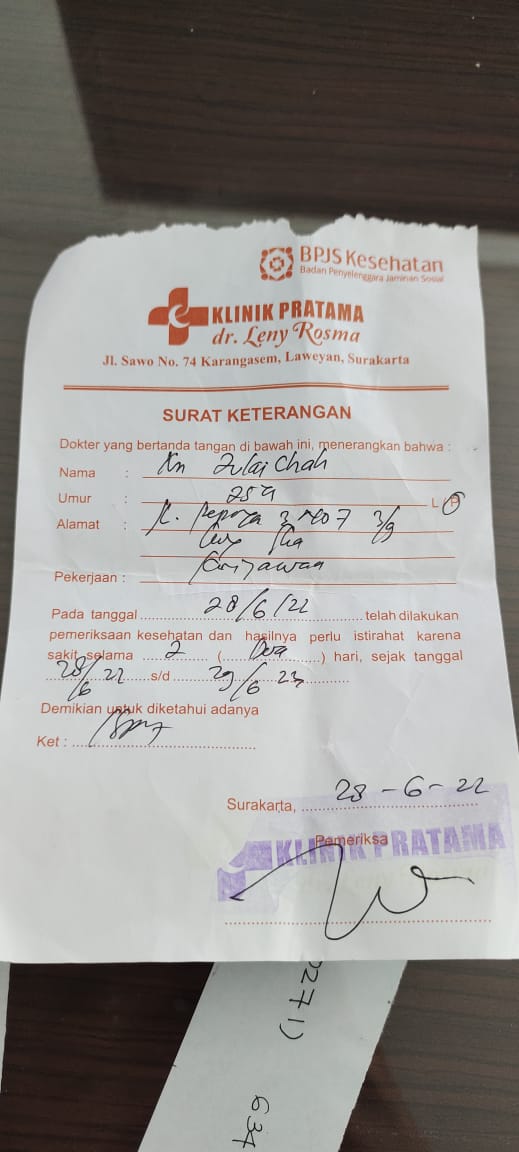 BPJS Kesehatan
Badan Penyelenggara Jaminan Sosial
KLINIK PRATAMA
dr. Leny Rosma
Jl. Sawo No. 74 Karangasem, Laweyan, Surakarta
SURAT KETERANGAN
Dokter yang bertanda tangan di bawah ini, menerangkan bahwa :
Nama : Nn Zulaichah
Umur : 25 L / P
Alamat :
Pekerjaan : Karyawan
Pada tanggal 28/6/22 telah dilakukan
pemeriksaan kesehatan dan hasilnya perlu istirahat karena
sakit selama 2 ( Dua ) hari, sejak tanggal
28/6 22 s/d 29/6
Demikian untuk diketahui adanya
Ket :
Surakarta, 28-6-22
Pemeriksa
KLINIK PRATAMA
0271)
634